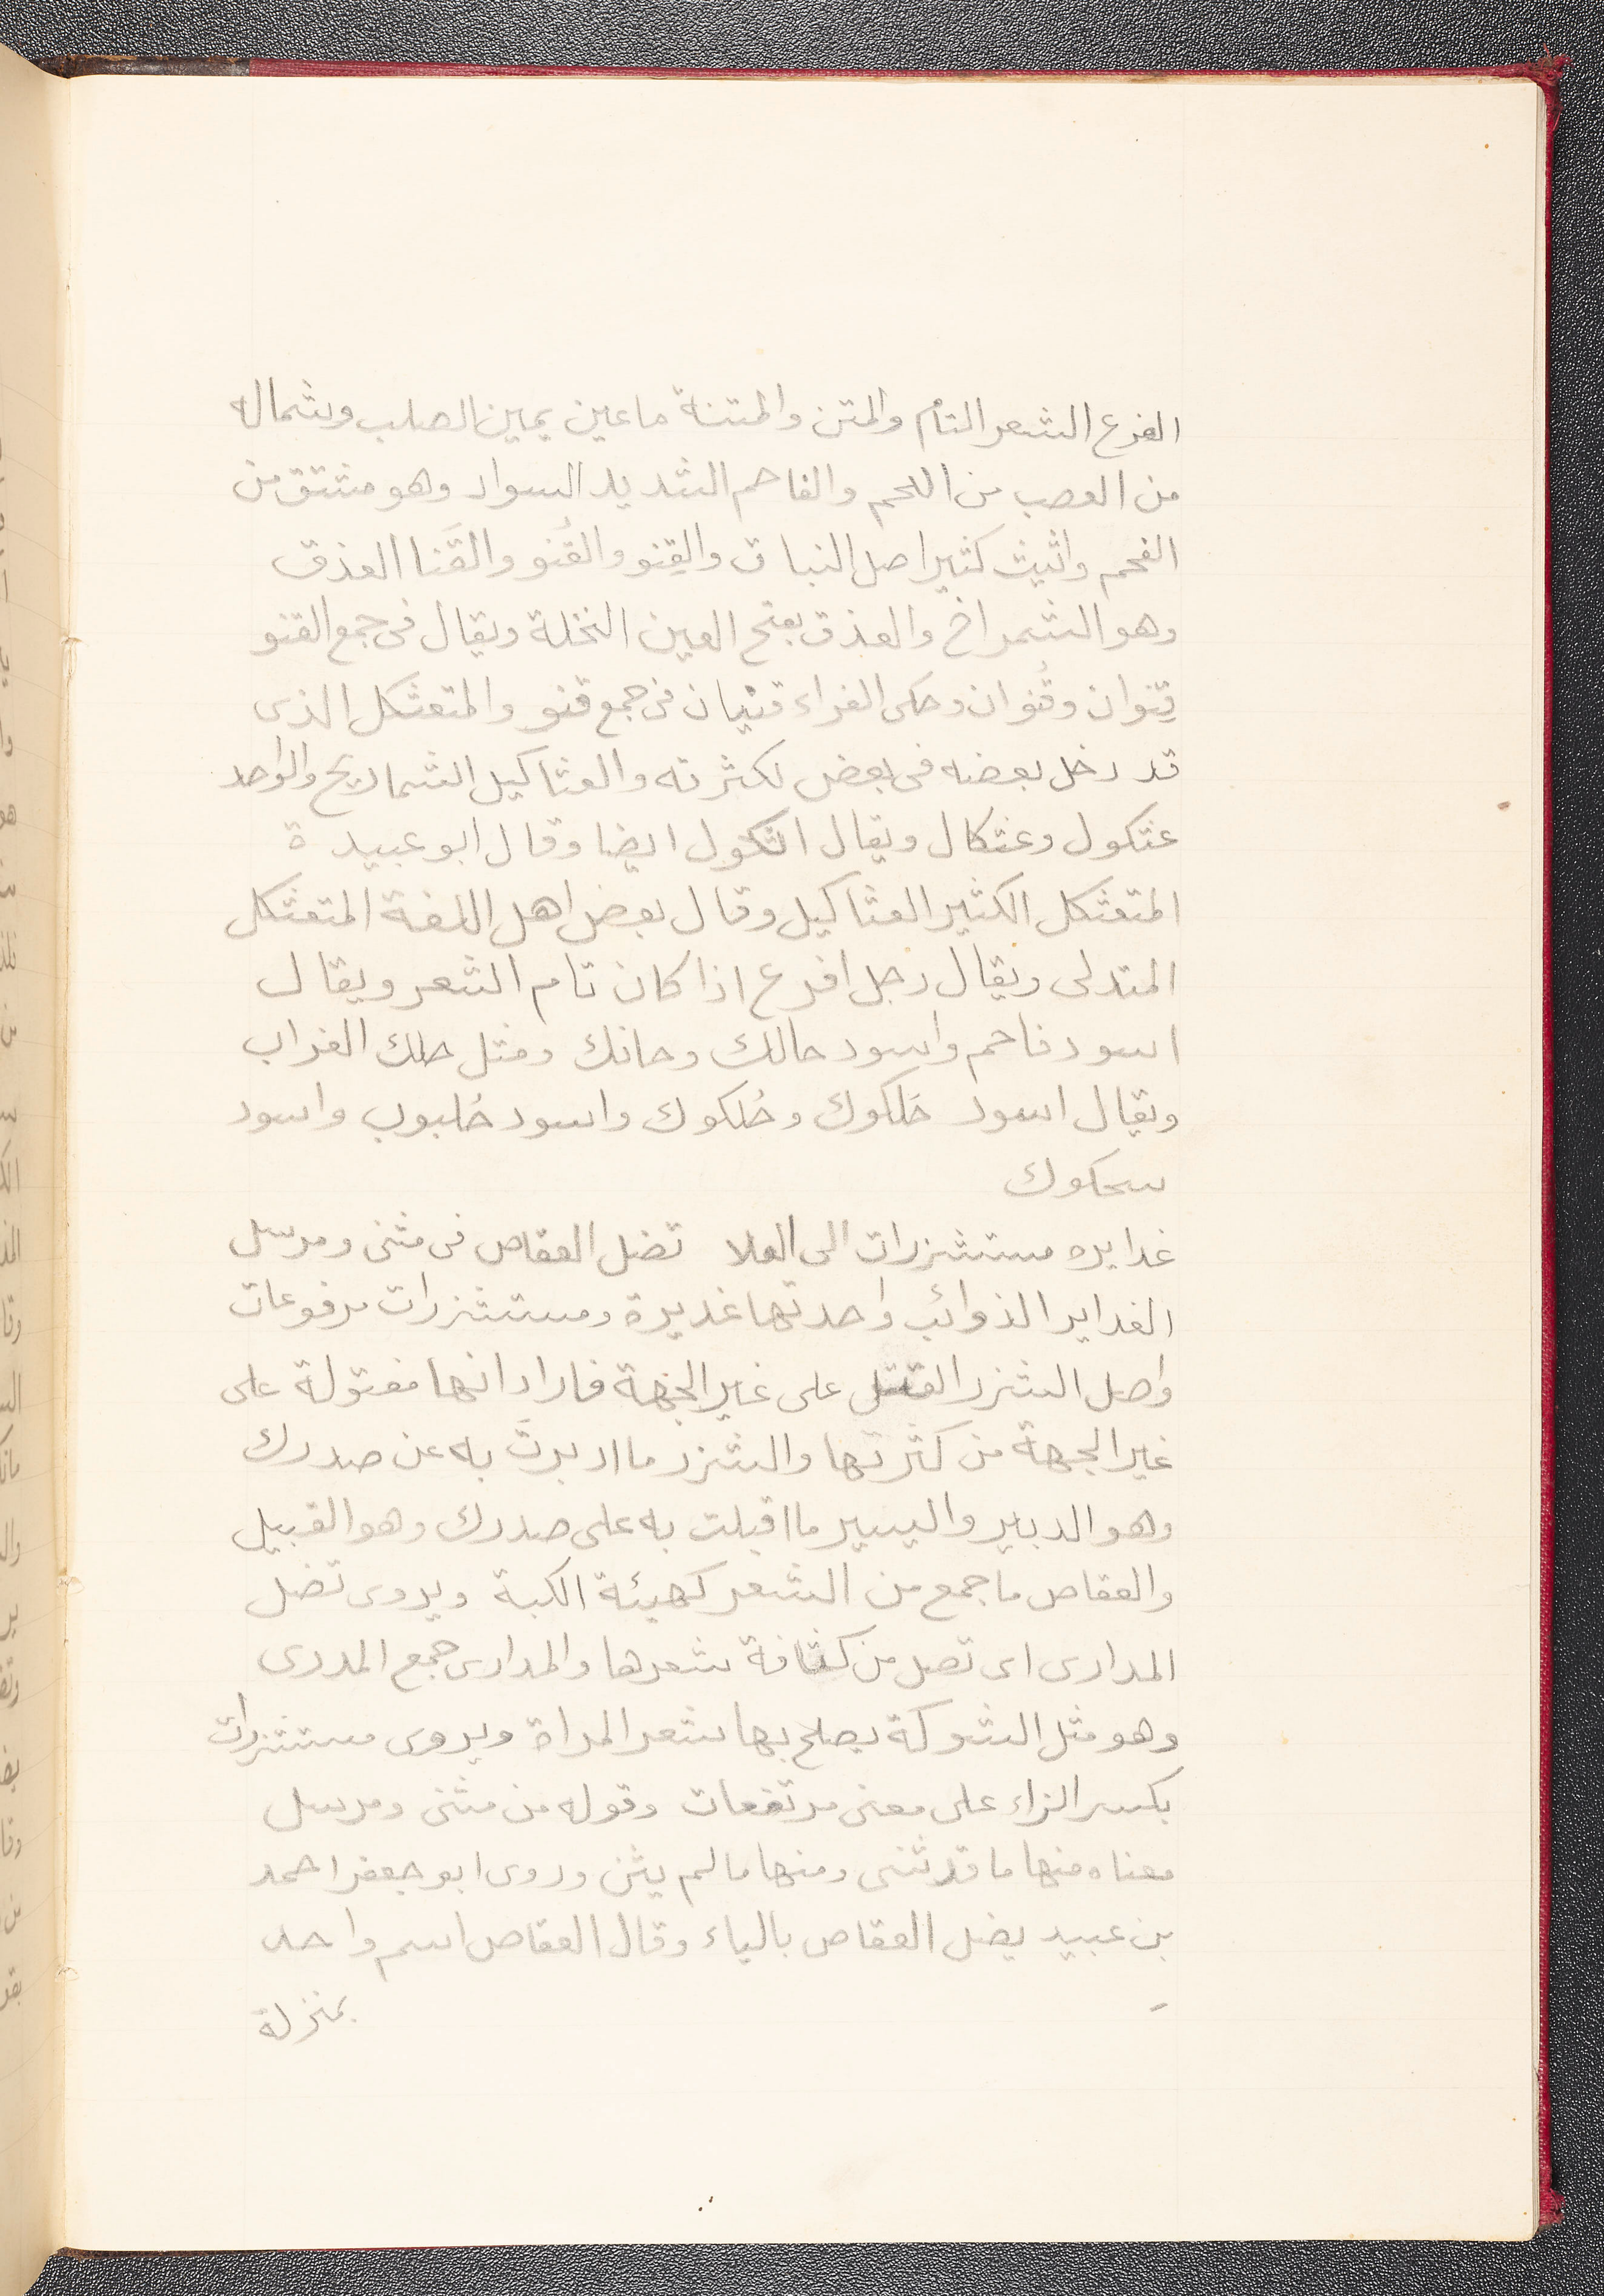 الفرع الشعر التام والمتن والمتنة ما عين يمين الصلب وشماله
من العصب من اللحم والفاحم الشديد السواد وهو مشتق من
الفحم واثيث كثير اصل النبات والقِنو والقُنو والقَنا العذق
وهو الشمراخ والعذق بفتح العين النخلة ويقال فى جمع القنو
قِنوان وقُنوان وحكى الفراء قنيان فى جمع قنو والمتعثكل الذى
قد دخل بعضه فى بعض لكثرته والعثاكيل الشماريخ والواحد
عثكول وعثكال ويقال اثكول ايضا وقال ابو عبيدة
المتعثكل الكثير العثاكيل وقال بعض اهل اللغة المتعثكل
المتدلى ويقال رجل افرع اذا كان تام الشعر ويقال
اسود فاحم واسود حالك وحانك ومثل حلك الغراب
ويقال اسود حَلكوك وحُلكوك واسود حُلبوب واسود
سحكوك
غدايره مستشزرات الى العلا تضل العقاص فى مثنى ومرسل
الغداير الذوائب واحدتها غديرة ومستشزرات مرفوعات
واصل الشزر الفتل على غير الجهة فاراد انها مفتولة على
غير الجهة من كثرتها والشزر ما ادبرتَ به عن صدرك
وهو الدبير واليسير ما اقبلت به على صدرك وهو القبيل
والعقاص ما جمع من الشعر كهيئة الكبة ويروى تضل
المدارى اى تصل من كثافة شعرها والمدارى جمع المدرى
وهو مثل الشوكة يصلح بها شعر المراة ويروى مستشزرات
بكسر الزاء على معنى مرتفعات وقوله من مثنى ومرسل
معناه منها ما قد ثنى ومنها ما لم يثن وروى ابو جعفر احمد
بن عبيد يضل العقاص بالياء وقال العقاص اسم واحد
بمنزلة